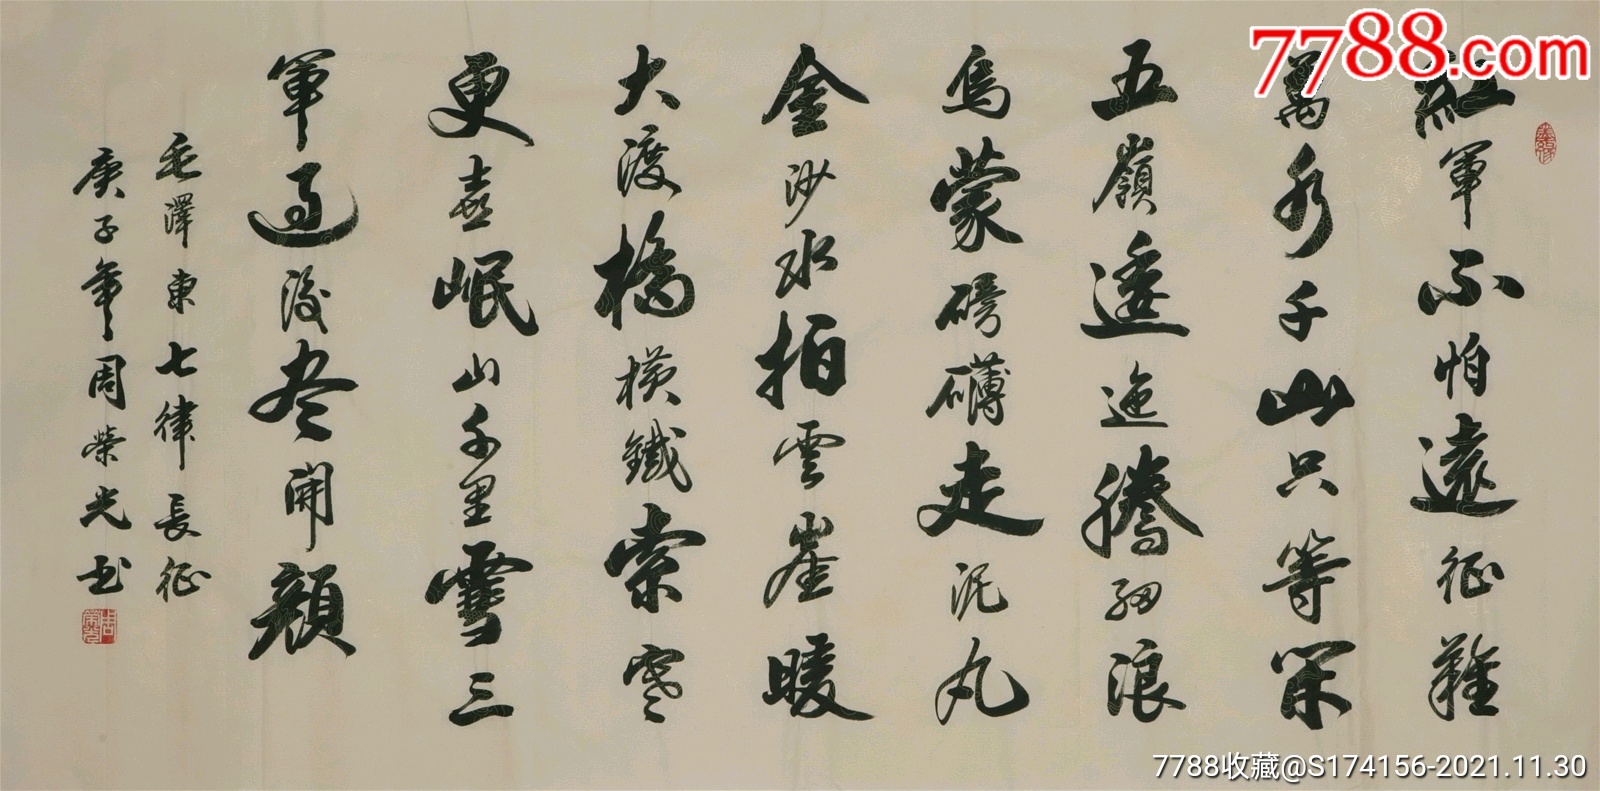 紅軍不怕遠征難
萬水千山只等閑
五嶺逶迤騰細浪
烏蒙磅礴走泥丸
金沙水拍雲崖暖
大渡橋橫鐵索寒
更喜岷山千里雪三
軍過後尽開顏
毛澤東七律長征
庚子年周榮光书
7788.com
7788收藏@S174156-2021.11.30